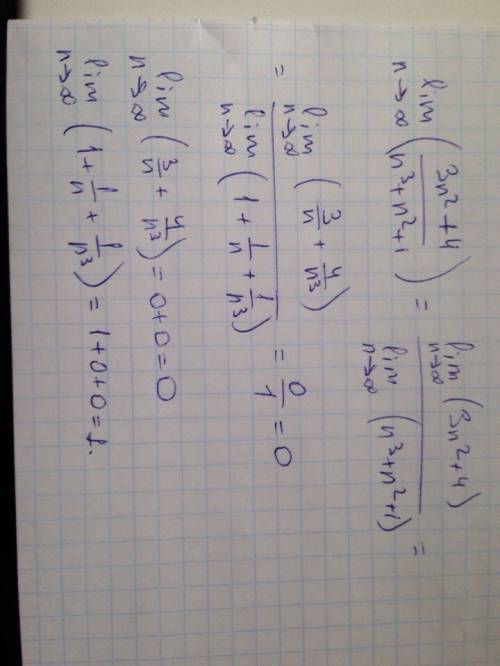 lim n→∞ ( (3n²+4) / (n³+n²+1) ) = lim n→∞ (3n²+4) / lim n→∞ (n³+n²+1) =
= lim n→∞ ( 3/n + 4/n³ ) / lim n→∞ ( 1 + 1/n + 1/n³ ) = 0/1 = 0
lim n→∞ ( 3/n + 4/n³ ) = 0+0=0
lim n→∞ ( 1 + 1/n + 1/n³ ) = 1+0+0=1.